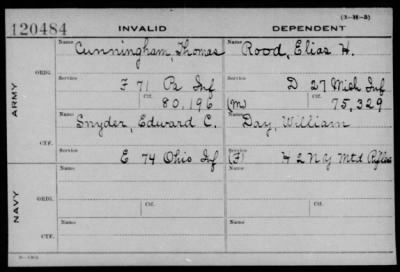 (3-H-5)
120484 INVALID DEPENDENT
Name Cunningham, Thomas Name Rood, Elias H.
ORIG.
Service F 71 Pa Inf Service D 27 Mich Inf
Ctf. 80,196 (M) Ctf. 75,329
ARMY
Name Snyder, Edward C. Name Day, William
CTF.
Service E 74 Ohio Inf Service (F) H 2 N Y Mtd Rifles
Name Name
ORIG.
Service Ctf. Service Ctf.
NAVY
Name Name
CTF.
Service Service